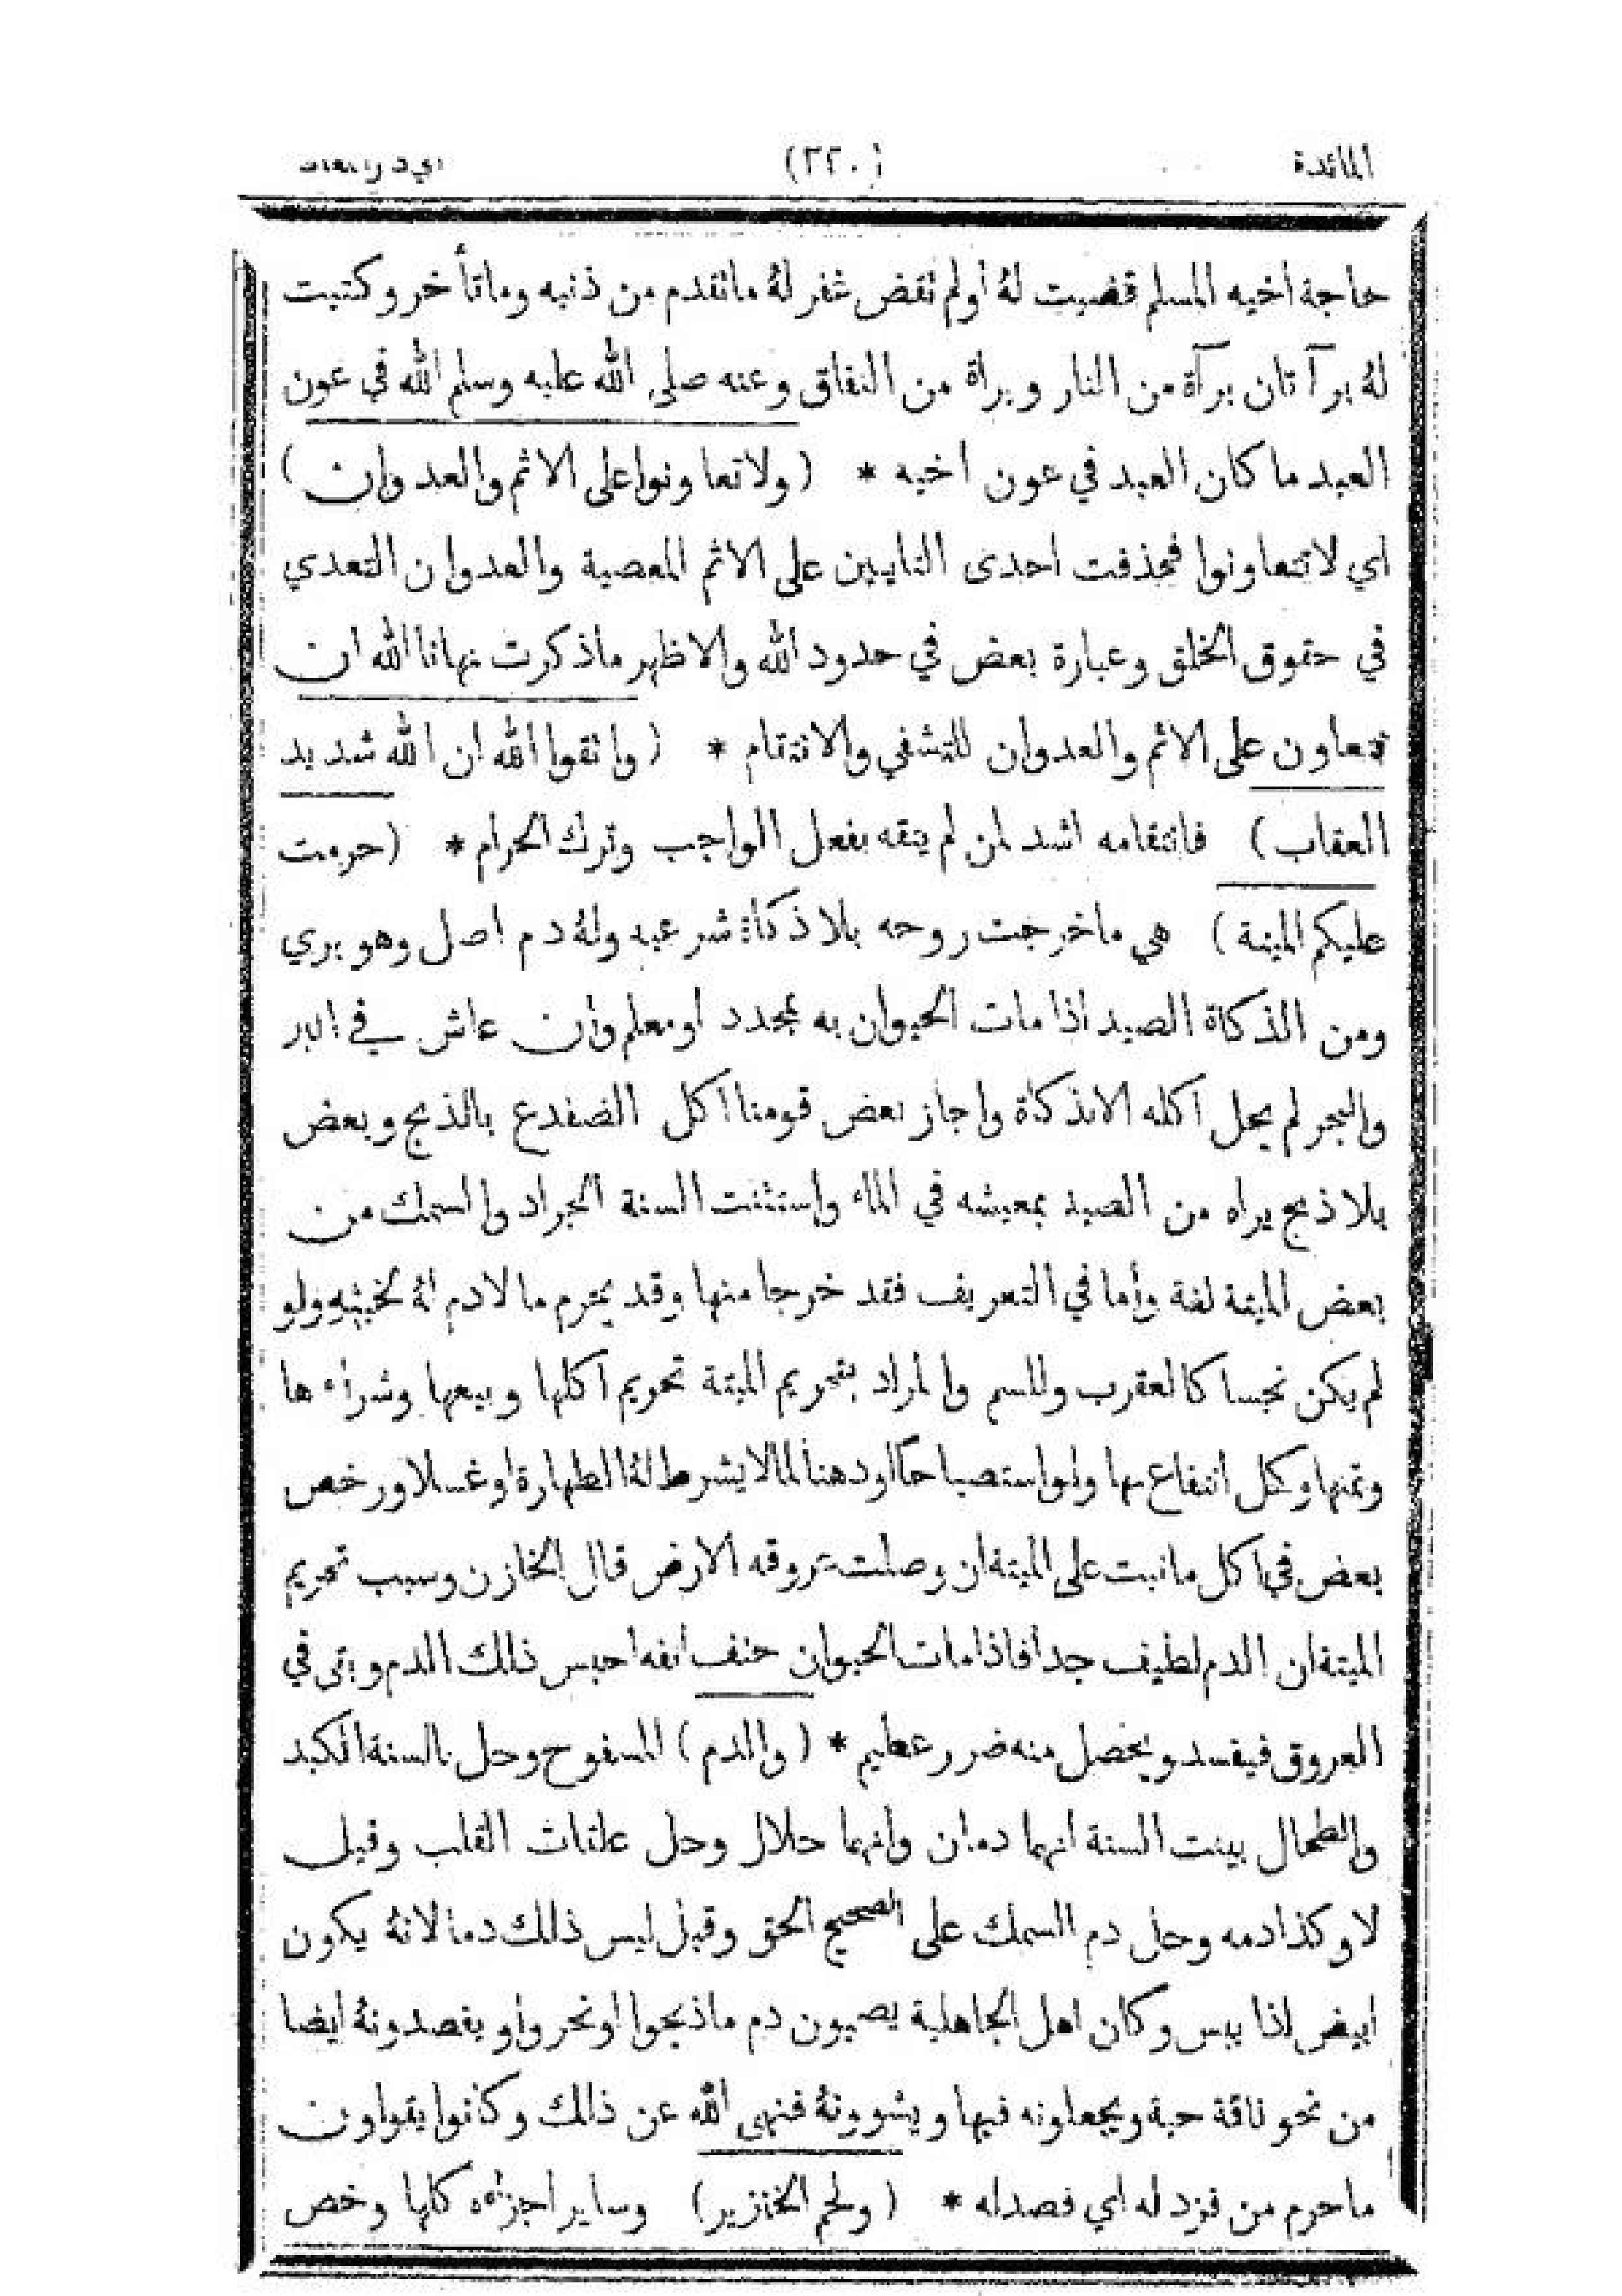 المائدة (٢٢٠)
حاجة اخيه المسلم قضيت لهُ اولم نقض غفر لهُ ماتقدم من ذنبه وماتأخر وكتبت
لهُ برآتان برآة من النار وبراة من النفاق وعنه صلى الله عليه وسلم الله في عون
العبد ما كان العبد في عون اخيه * (ولا تعاونوا على الاثم والعدوان)
اي لاتتعاونوا فحذفت احدى التايين على الاثم المعصية والعدوان التعدي
في حقوق الخلق وعبارة بعض في حدود الله والاظهر ماذكرت نهانا الله ان
نتعاون على الاثم والعدوان للتشفي والانتقام * (واتقوا الله ان الله شديد
العقاب) فانتقامه اشد لمن لم يتقه بفعل الواجب وترك الحرام * (حرمت
عليكم الميتة) هي ماخرجت روحه بلا ذكاة شرعيه ولهُ دم اصل وهو بري
ومن الذكاة الصيد اذا مات الحيوان به بمحدد او معلم وان عاش في البر
والبحر لم يحل اكله الابذكاة واجاز بعض قومنا اكل الضفدع بالذبح وبعض
بلاذبح يراه من الصيد بمعيشه في الماء واستثنت السنة الجراد والسمك من
بعض الميتة لغة وأما في التعريف فقد خرجا منها وقد يحرم ما لادم لهُ لخبثه ولو
لم يكن نجسا كالعقرب والسم والمراد بتحريم الميتة تحريم اكلها وبيعها وشراءها
وثمنها وكل انتفاع بها ولو استصباحا اودهنا لما لايشرط لهُ الطهارة او غسلا ورخص
بعض في اكل مانبت على الميتة ان وصلت عروقه الارض قال الخازن وسبب تحريم
الميتة ان الدم لطيف جدا فاذا مات الحيوان حتف انفه احبس ذلك الدم وبقى في
العروق فيفسد ويحصل منه ضرر عظيم * (والدم) المسفوح وحل بالسنة الكبد
والطحال بينت السنة انهما دمان وانهما حلال وحل علقات القلب وقيل
لا وكذا دمه وحل دم السمك على الصحيح الحق وقيل ليس ذلك دما لانهُ يكون
ابيض اذا يبس وكان اهل الجاهلية يصبون دم ماذبحوا اونحروا او يفصدونهُ ايضا
من نحو ناقة حية ويجعلونه فيها ويشوونهُ فنهى الله عن ذلك وكانوا يقولون
ماحرم من فزد له اي فصدله * (ولحم الخنزير) وساير اجزئه كلها وخص